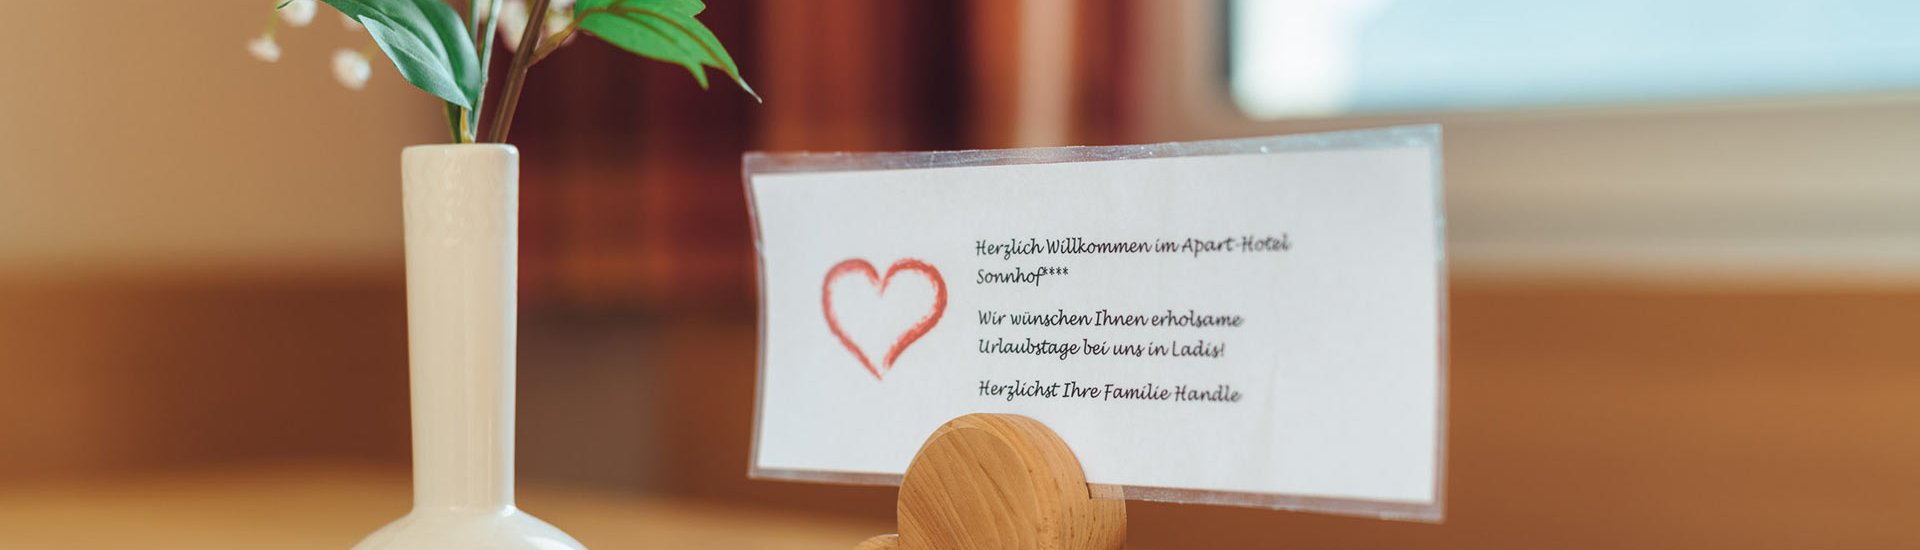 Herzlich Willkommen im Apart-Hotel
Sonnhof****
Wir wünschen Ihnen erholsame
Urlaubstage bei uns in Ladis!
Herzlichst Ihre Familie Handle